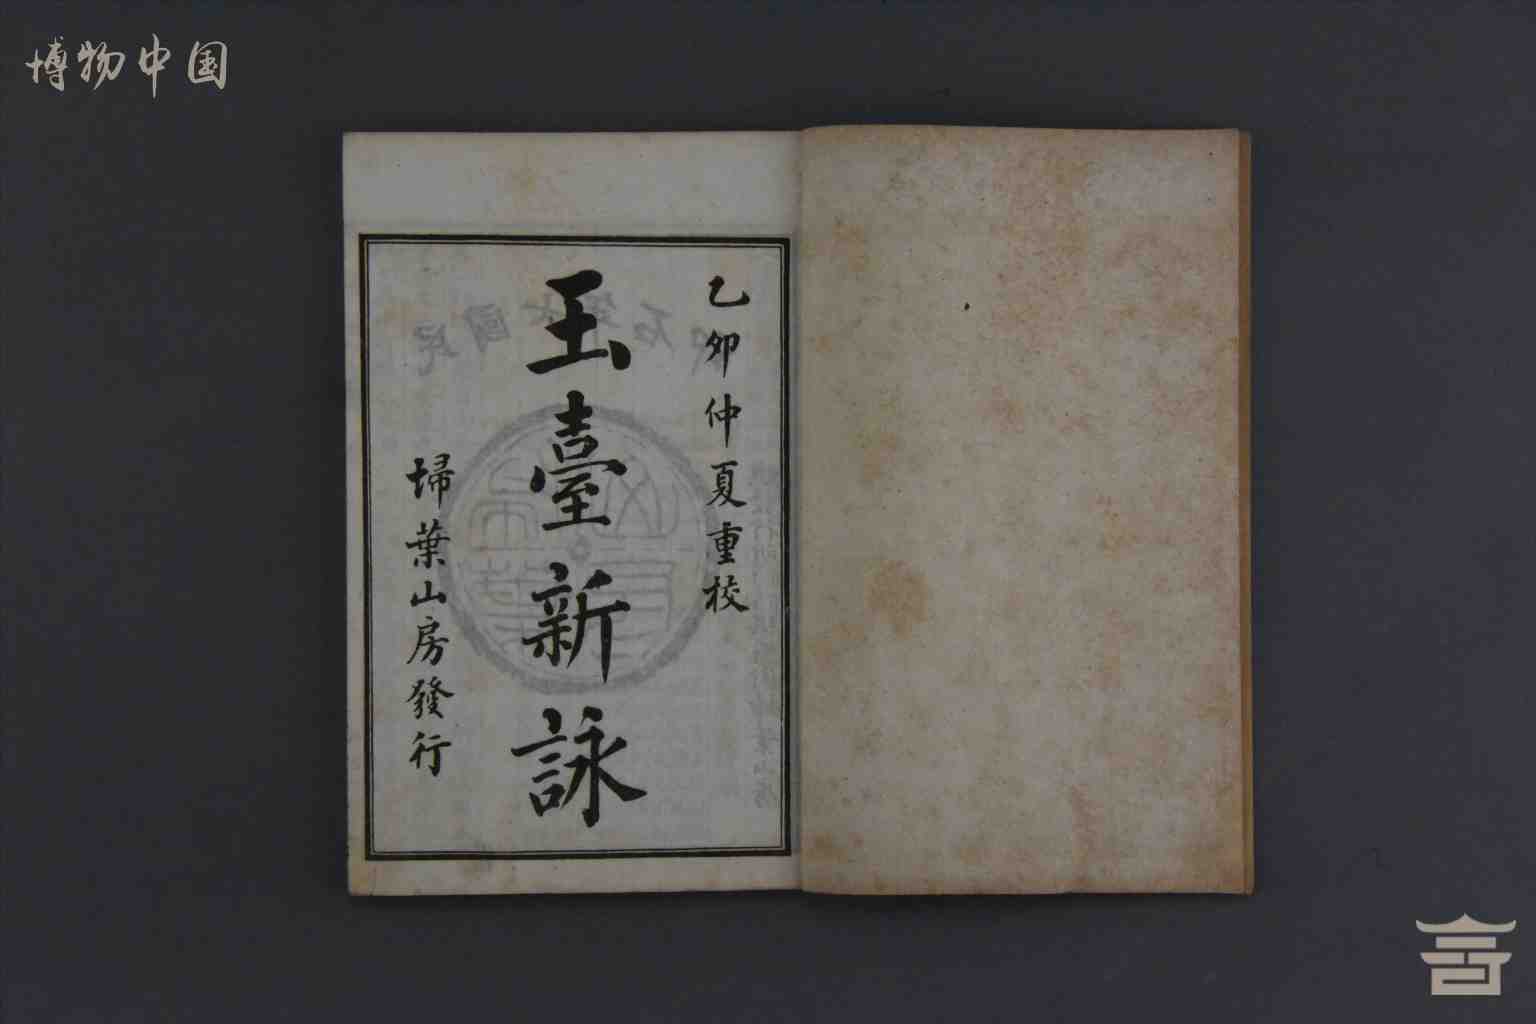 博物中国
乙卯仲夏重校
玉臺新詠
埽葉山房發行